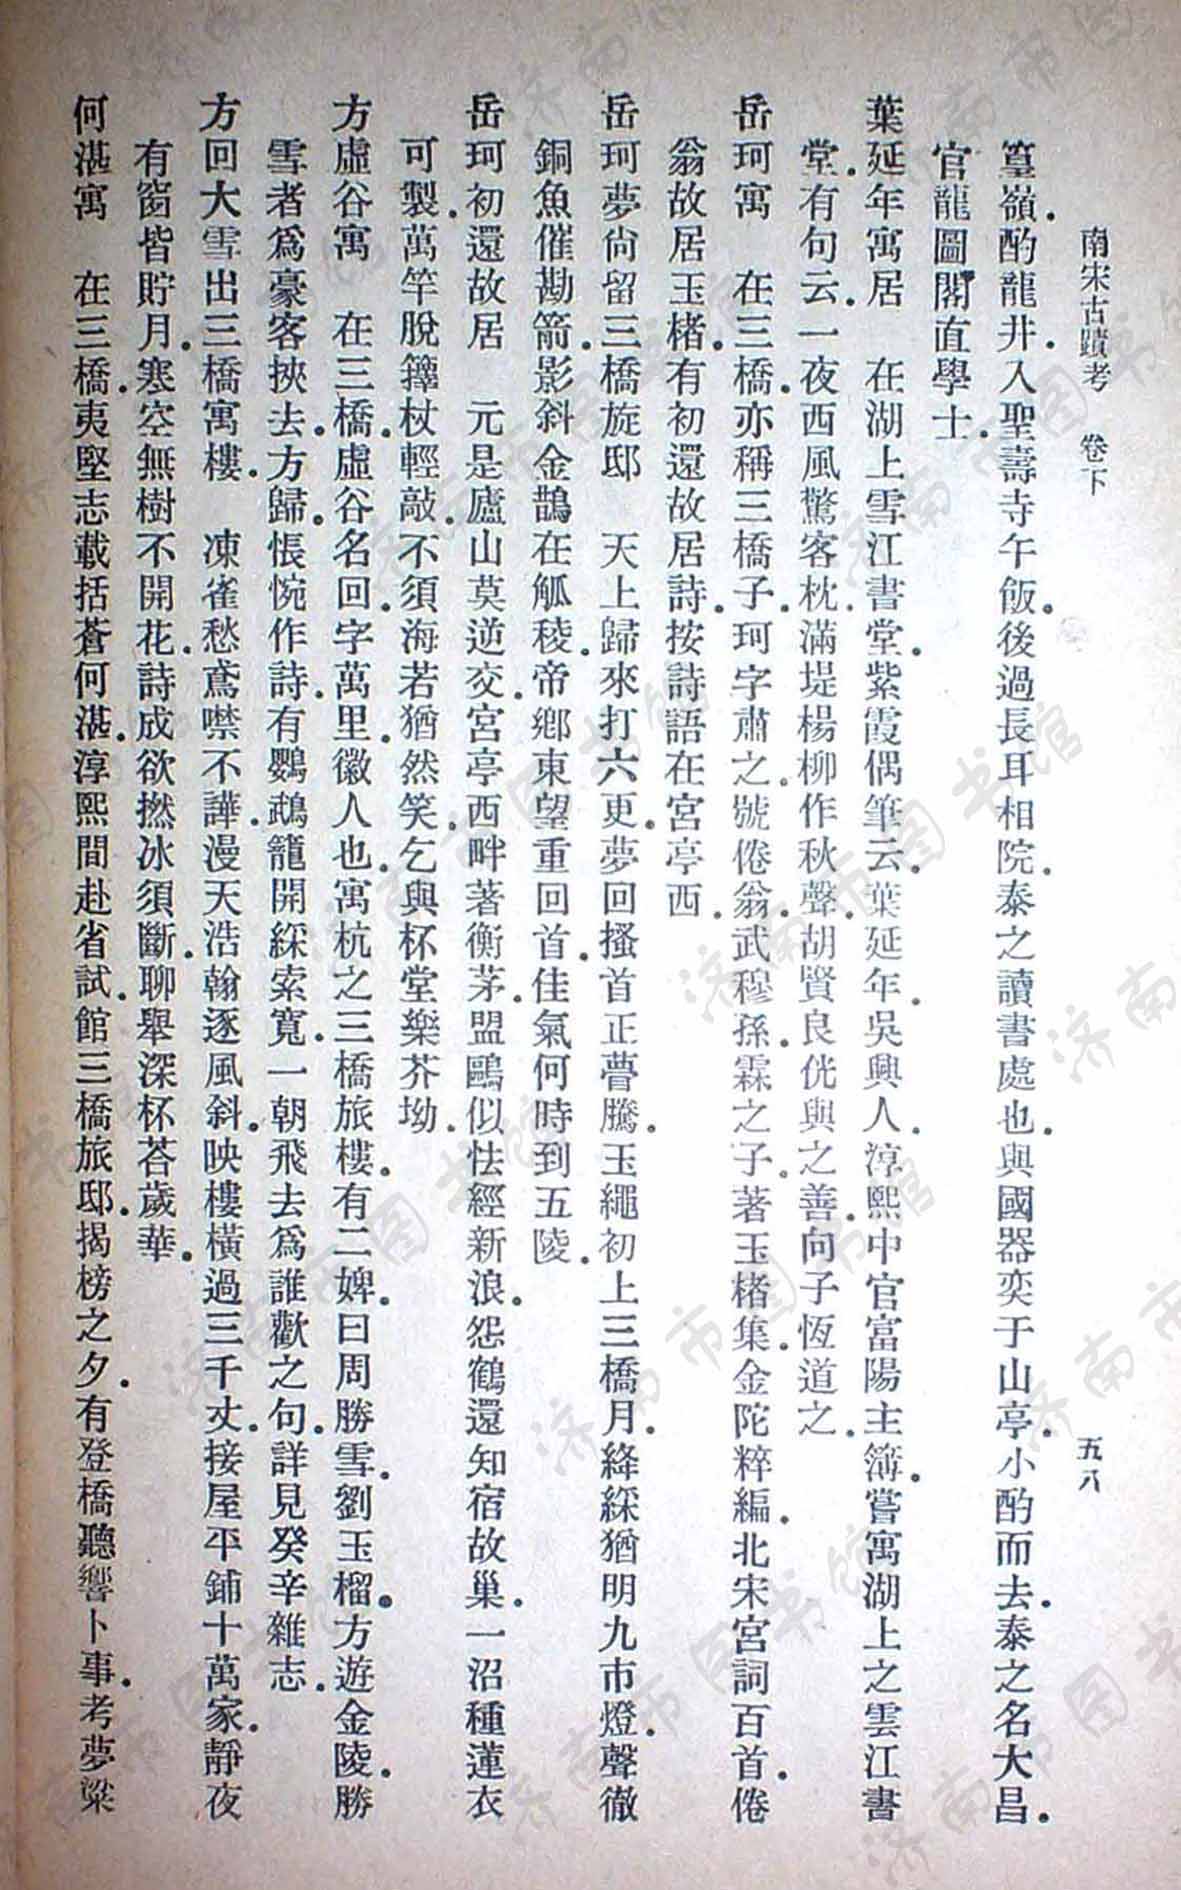 南宋古蹟考 卷下 五八
篁嶺.酌龍井.入聖壽寺午飯.後過長耳相院.泰之讀書處也.與國器奕于山亭.小酌而去.泰之名大昌.
官龍圖閣直學士.
葉延年寓居 在湖上雪江書堂.紫霞偶筆云.葉延年.吳興人.淳熙中官富陽主簿.嘗寓湖上之雲江書
堂.有句云.一夜西風驚客枕.滿堤楊柳作秋聲.胡賢良侊與之善.向子恆道之.
岳珂寓 在三橋.亦稱三橋子.珂字肅之.號倦翁.武穆孫.霖之子.著玉楮集.金陀粹編.北宋宮詞百首.倦
翁故居玉楮.有初還故居詩.按詩語在宮亭西.
岳珂夢尙留三橋旋邸 天上歸來打六更.夢回搔首正瞢騰.玉繩初上三橋月.絳綵猶明九市燈.聲徹
銅魚催勘箭.影斜金鵲在觚稜.帝鄕東望重回首.佳氣何時到五陵.
岳珂初還故居 元是廬山莫逆交.宮亭西畔著衡茅.盟鷗似怯經新浪.怨鶴還知宿故巢.一沼種蓮衣
可製.萬竿脫籜杖輕敲.不須海若猶然笑.乞與杯堂樂芥坳.
方虛谷寓 在三橋.虛谷名回.字萬里.徽人也.寓杭之三橋旅樓.有二婢.曰周勝雪.劉玉榴.方遊金陵.勝
雪者爲豪客挾去.方歸.悵惋作詩.有鸚鵡籠開綵索寬.一朝飛去爲誰歡之句.詳見癸辛雜志.
方回大雪出三橋寓樓 凍雀愁鳶噤不譁.漫天浩翰逐風斜.映樓橫過三千丈.接屋平鋪十萬家.靜夜
有窗皆貯月.寒空無樹不開花.詩成欲撚冰須斷.聊舉深杯荅歲華.
何湛寓 在三橋.夷堅志載括蒼何湛.淳熙間赴省試.館三橋旅邸.揭榜之夕.有登橋聽響卜事.考夢粱